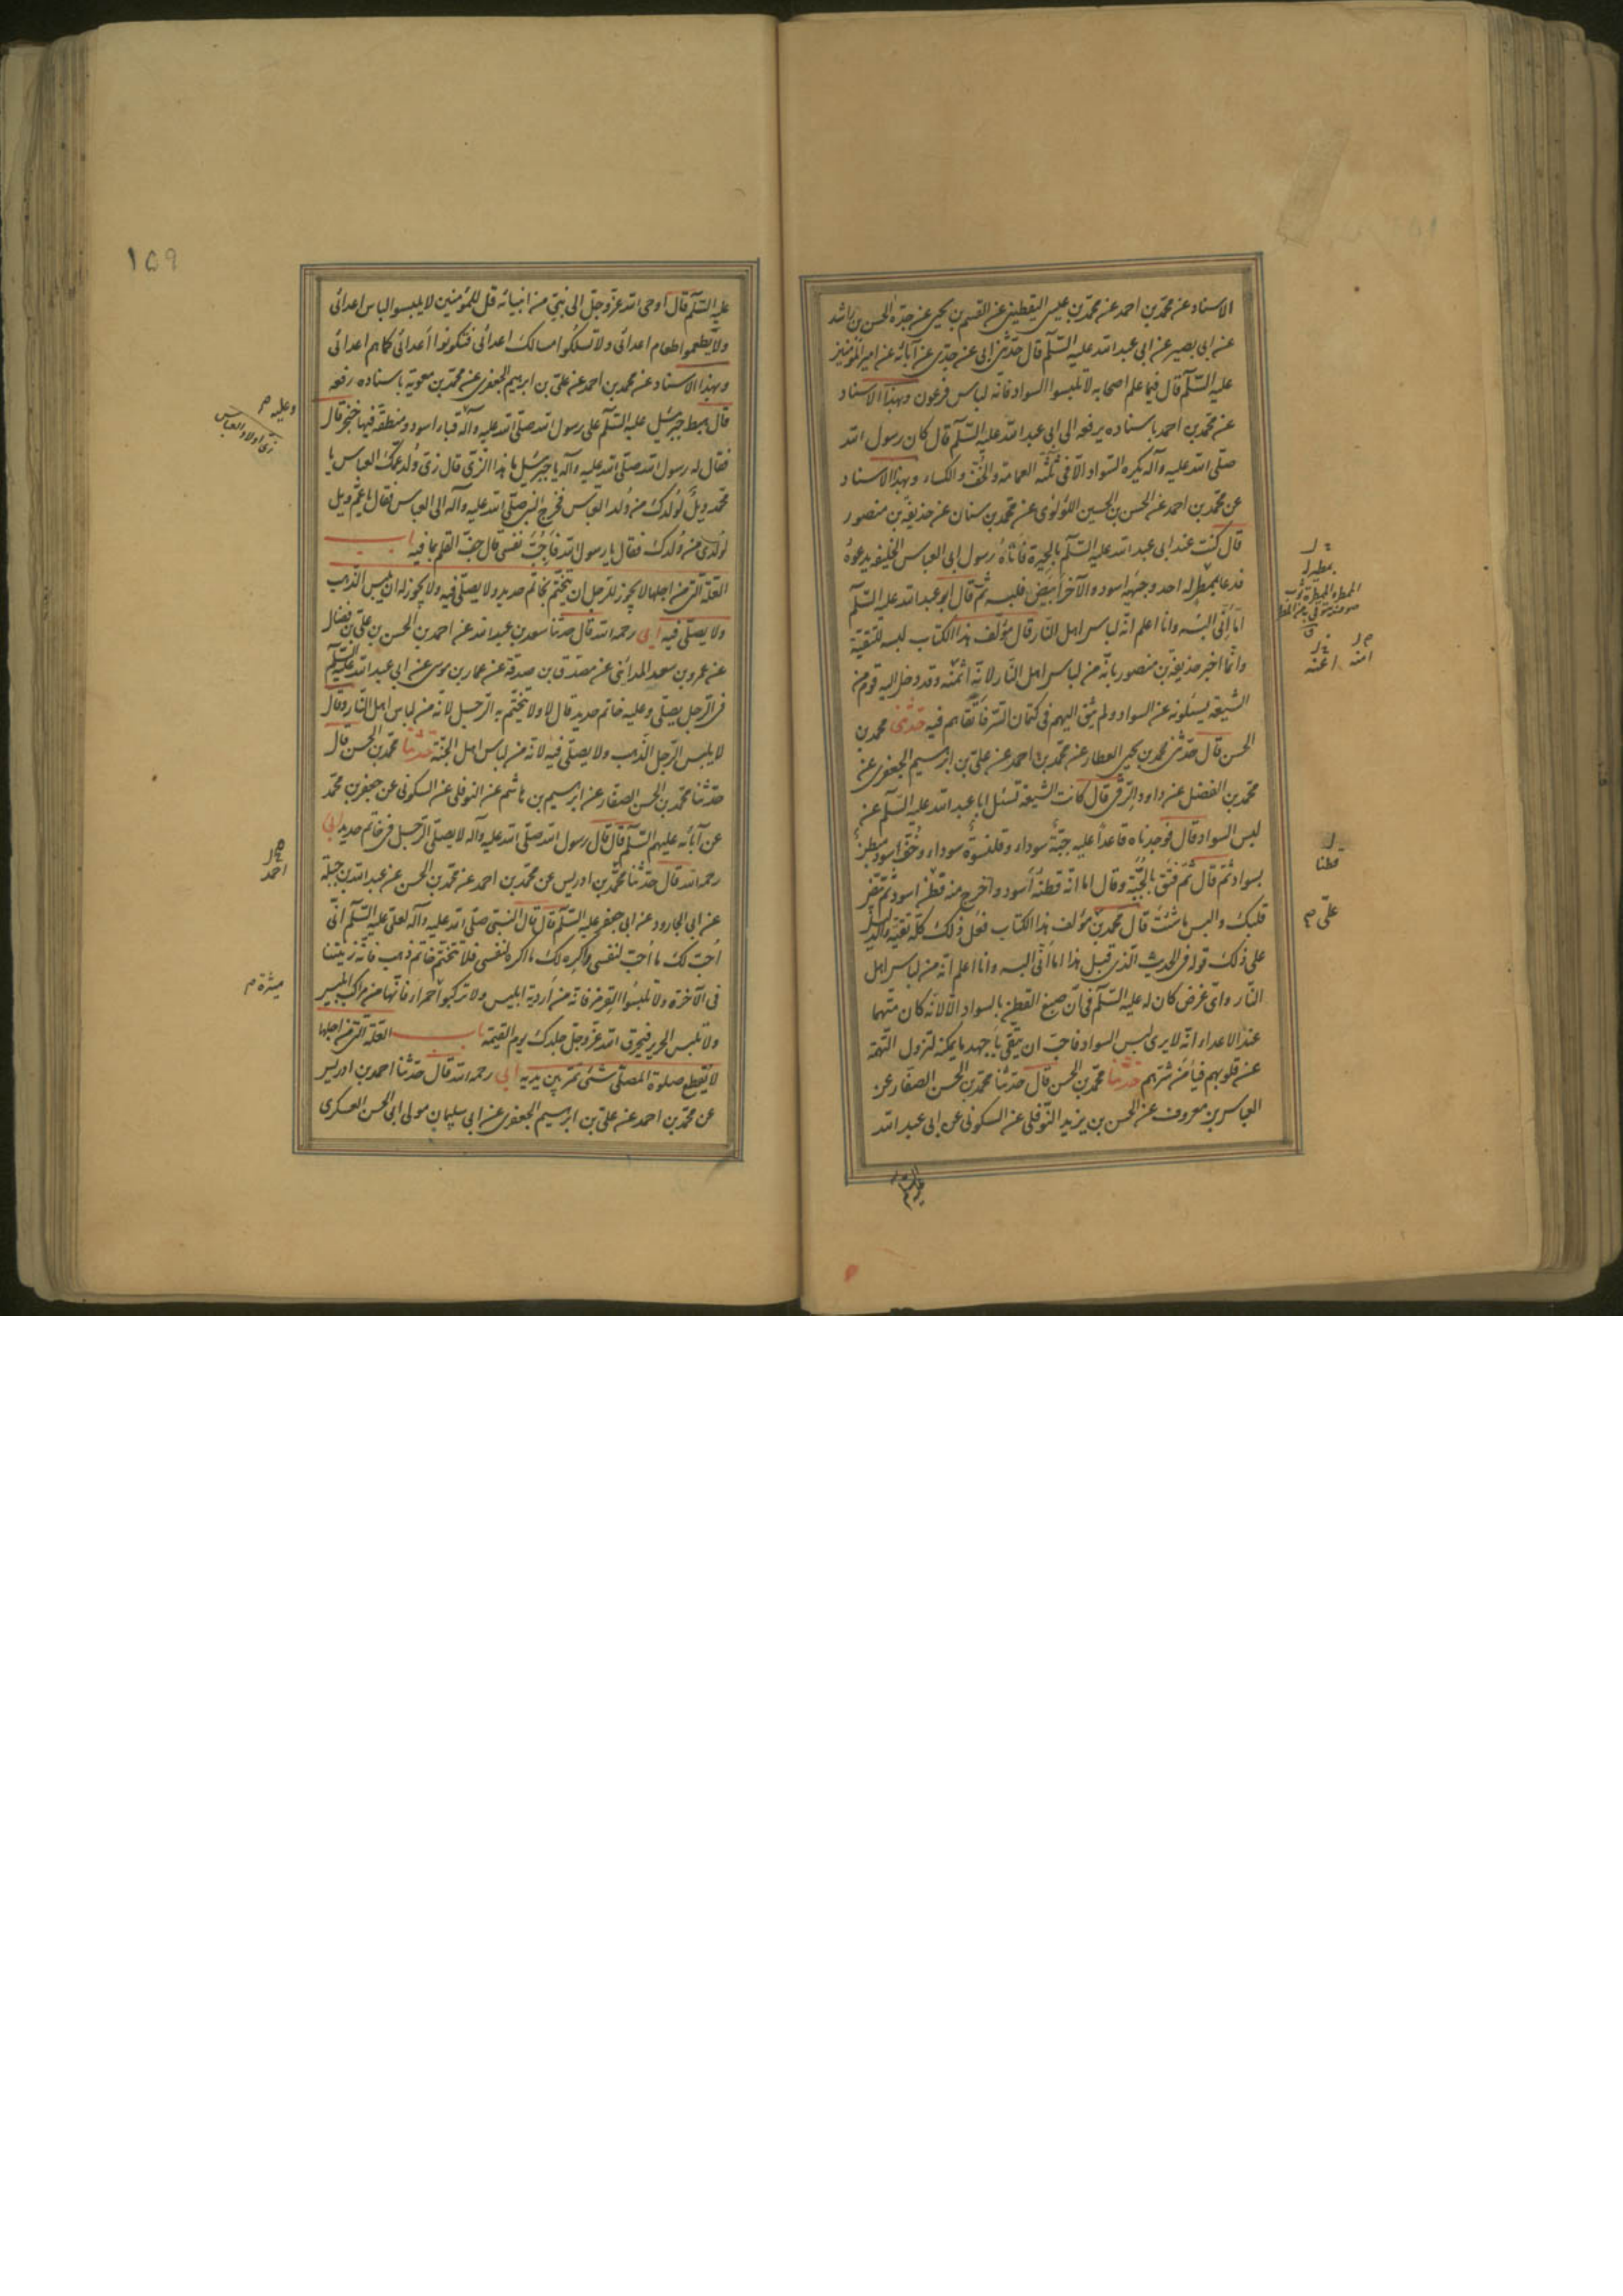 الاسناد عن محمد بن احمد عن محمد بن عيسى اليقطيني عن القسم بن يحيى عن جده الحسن بن راشد
عن ابى بصير عن ابى عبد الله عليه السلم قال حدثنى ابى عن جدى عن آبائه عن امير المؤمنين
عليه السلم قال فيما علم اصحابه لا تلبسوا السواد فانه لباس فرعون وبهذا الاسناد
عن محمد بن احمد باسناده يرفعه الى ابى عبد الله عليه السلم قال كان رسول الله
صلى الله عليه وآله يكره السواد الا فى ثلثه العمامة والخف والكساء وبهذا الاسناد
عن محمد بن احمد عن الحسن بن الحسين اللؤلؤى عن محمد بن سنان عن حذيفة بن منصور
قال كنت عند ابى عبد الله عليه السلم بالحيرة فاتاه رسول ابى العباس الخليفه يدعوه
فدعا بممطر له احد وجهيه اسود والآخر ابيض فلبسه ثم قال ابو عبد الله عليه السلم
اما انى البسه وانا اعلم انه لباس اهل النار قال مؤلف هذا الكتاب لبسه للتقية
وانما اخبر حذيفة بن منصور بانه من لباس اهل النار لانه ائتمنه وقد دخل اليه قوم من
الشيعة يسئلونه عن السواد ولم يثق اليهم فى كتمان السر فاتقاهم فيه حدثنى محمد بن
الحسن قال حدثنى محمد بن يحيى العطار عن محمد بن احمد عن على بن ابرهيم الجعفرى عن
محمد بن الفضل عن داود الرقى قال كانت الشيعة تسئل ابا عبد الله عليه السلم عن
لبس السواد قال فوجدناه قاعدا عليه جبة سوداء وقلنسوة سوداء وخف اسود مبطن
بسواد ثم قال ثم فتق بالجبة وقال اما انه قطنه اسود واخرج منه قطن اسود ثم قال بيض
قلبك والبس ما شئت قال محمد بن مؤلف هذا الكتاب فعل ذلك كله تقية والدليل
على ذلك قوله فى الحديث الذى قبل هذا اما انى البسه وانا اعلم انه من لباس اهل
النار واى غرض كان له عليه السلم فى ان صبغ القطن بالسواد الا لانه كان متهما
عند الاعداء انه لا يرى لبس السواد فاحب ان يتقى باجهد ما يمكنه لتزول التهمة
عن قلوبهم فيامن شرهم حدثنا محمد بن الحسن قال حدثنا محمد بن الحسن الصفار عن
العباس بن معروف عن الحسن بن يزيد النوفلى عن السكونى عن ابى عبد الله
عليه السلم
قطنا
على م
١٥٩
عليه السلم قال اوحى الله عز وجل الى نبى من انبيائه قل للمؤمنين لا يلبسوا لباس اعدائى
ولا يطعموا طعام اعدائى ولا تسلكوا مسالك اعدائى فتكونوا اعدائى كما هم اعدائى
وبهذا الاسناد عن محمد بن احمد عن على بن ابرهيم الجعفرى عن محمد بن معوية باسناده رفعه
قال هبط جبرئيل عليه السلم على رسول الله صلى الله عليه وآله قباء اسود ومنطقة فيها خنجر قال
فقال له رسول الله صلى الله عليه وآله يا جبرئيل ما هذا الزى قال زى ولد عمك العباس يا
محمد ويل لولدك من ولد العباس فخرج النبى صلى الله عليه وآله الى العباس فقال يا عم ويل
لولدى من ولدك فقال يا رسول الله فاجب نفسى قال جف القلم بما فيه باب
العلة التى من اجلها لا يجوز للرجل ان يتختم بخاتم حديد ولا يصلى فيه ولا يجوز له ان يلبس الذهب
ولا يصلى فيه ابى رحمه الله قال حدثنا سعد بن عبد الله عن احمد بن الحسن بن على بن فضال
عن عمرو بن سعد المدائنى عن مصدق بن صدقة عن عمار بن موسى عن ابى عبد الله عليه السلم
فى الرجل يصلى وعليه خاتم حديد قال لا ولا يتختم به الرجل لانه من لباس اهل النار وقال
لا يلبس الرجل الذهب ولا يصلى فيه لانه من لباس اهل الجنة حدثنا محمد بن الحسن قال
حدثنا محمد بن الحسن الصفار عن ابرهيم بن هاشم عن النوفلى عن السكونى عن جعفر بن محمد
عن آبائه عليهم السلم قال قال رسول الله صلى الله عليه وآله لا يصلى الرجل فى خاتم حديد ابى
رحمه الله قال حدثنا محمد بن ادريس عن محمد بن احمد عن محمد بن الحسن عن عبد الله بن جبلة
عن ابى الجارود عن ابى جعفر عليه السلم قال قال النبى صلى الله عليه وآله لعلى عليه السلم انى
احب لك ما احب لنفسى واكره لك ما اكره لنفسى فلا تتختم خاتم ذهب فانه زينتنا
فى الآخرة ولا تلبسوا القرمز فانه من اردية ابليس ولا تركبوا احمراء فانها من مراكب ابليس
ولا تلبس الحرير فيحرق الله عز وجل جلدك يوم القيمة باب العلة التى من اجلها
لا يقطع صلوة المصلى شئ يمر بين يديه ابى رحمه الله قال حدثنا احمد بن ادريس
عن محمد بن احمد عن على بن ابرهيم الجعفرى عن ابى سليمان مولى ابى الحسن العسكرى
وعليه م
زى اولاد العباس
احمد
ميثرة م